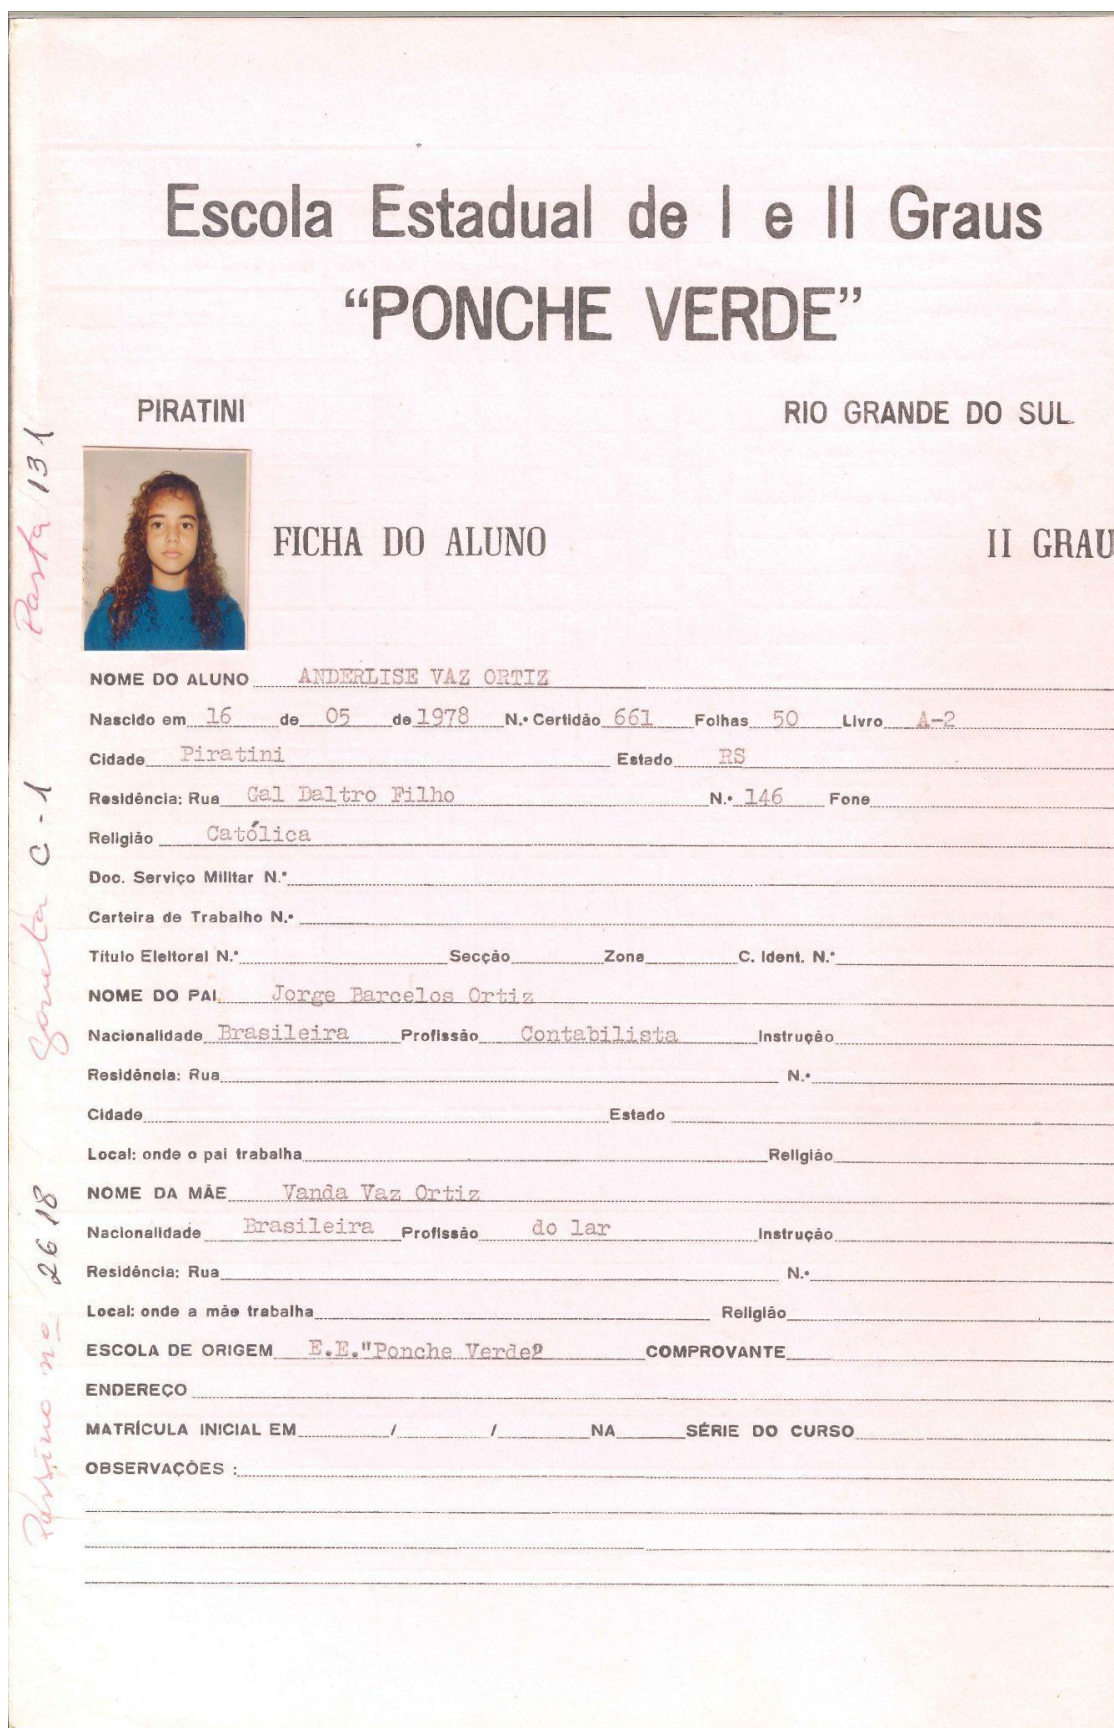 Escola Estadual de I e II Graus
“PONCHE VERDE”
PIRATINI RIO GRANDE DO SUL
FICHA DO ALUNO II GRAU
NOME DO ALUNO ANDERLISE VAZ ORTIZ
Nascido em 16 de 05 de 1978 N.º Certidão 661 Folhas 50 Livro A-2
Cidade Piratini Estado RS
Residência: Rua Gal Daltro Filho N.º 146 Fone
Religião Católica
Doc. Serviço Militar N.º
Carteira de Trabalho N.º
Título Eleitoral N.º Secção Zona C. Ident. N.º
NOME DO PAI Jorge Barcelos Ortiz
Nacionalidade Brasileira Profissão Contabilista Instrução
Residência: Rua N.º
Cidade Estado
Local: onde o pai trabalha Religião
NOME DA MÃE Vanda Vaz Ortiz
Nacionalidade Brasileira Profissão do lar Instrução
Residência: Rua N.º
Local: onde a mãe trabalha Religião
ESCOLA DE ORIGEM E.E."Ponche Verde" COMPROVANTE
ENDEREÇO
MATRÍCULA INICIAL EM / / NA SÉRIE DO CURSO
OBSERVAÇÕES :
Passivo nº 2618 gaveta C-1 Pasta 131